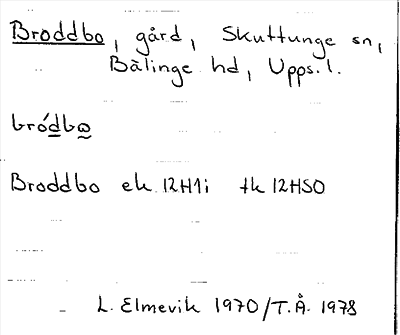 Broddbo, gård, Skuttunge sn,
Bälinge hd, Upps. l.
bródbo
Broddbo ek. 12H1i tk 12HSO
L. Elmevik 1970/T.Å. 1978